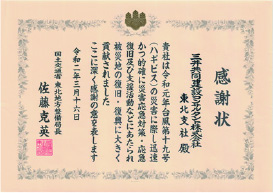 感謝状
三井共同建設コンサルタント株式会社
東北支社 殿
貴社は令和元年台風第十九号
(ハギビス)の災害に際し迅速
かつ的確に災害応急対策・応急
復旧及び支援活動などにあたられ
被災地の復旧・復興に大きく
貢献されました
ここに深く感謝の意を表します
令和二年三月十六日
国土交通省東北地方整備局長
佐藤克英